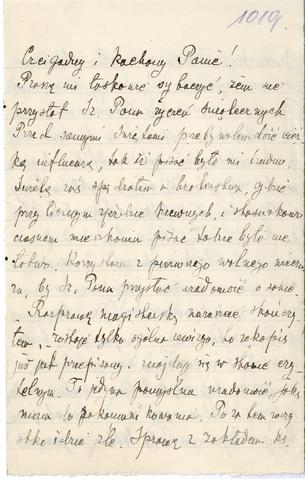 1019.
Czcigodny i Kochany Panie!
Proszę mi łaskawie wybaczyć, żem nie
przysłał Sz. Panu życzeń świątecznych
Przed samymi świętami przebywałem dość cięż-
ką influenzę, tak iż pisać było mi trudno.
Święta zaś spędzałem w , gdzie
przy licznym zjeździe krewnych, i stosunkowo
ciasnem mieszkaniu pisać także było nie
łatwo. Korzystam z pierwszego wolnego wieczo-
ru, by Sz. Panu przysłać wiadomość o sobie.
Rozprawę magisterską nareszcie skończy-
łem, zostaje tylko ogólna rewizja, bo rękopis
już jest przepisany i znajduje się w stanie czy-
telnym. To jedyna pomyślna wiadomość, jaką
mam do zakomunikowania. Poza tem wszy-
stko idzie źle. Sprawa z zakładem ks.